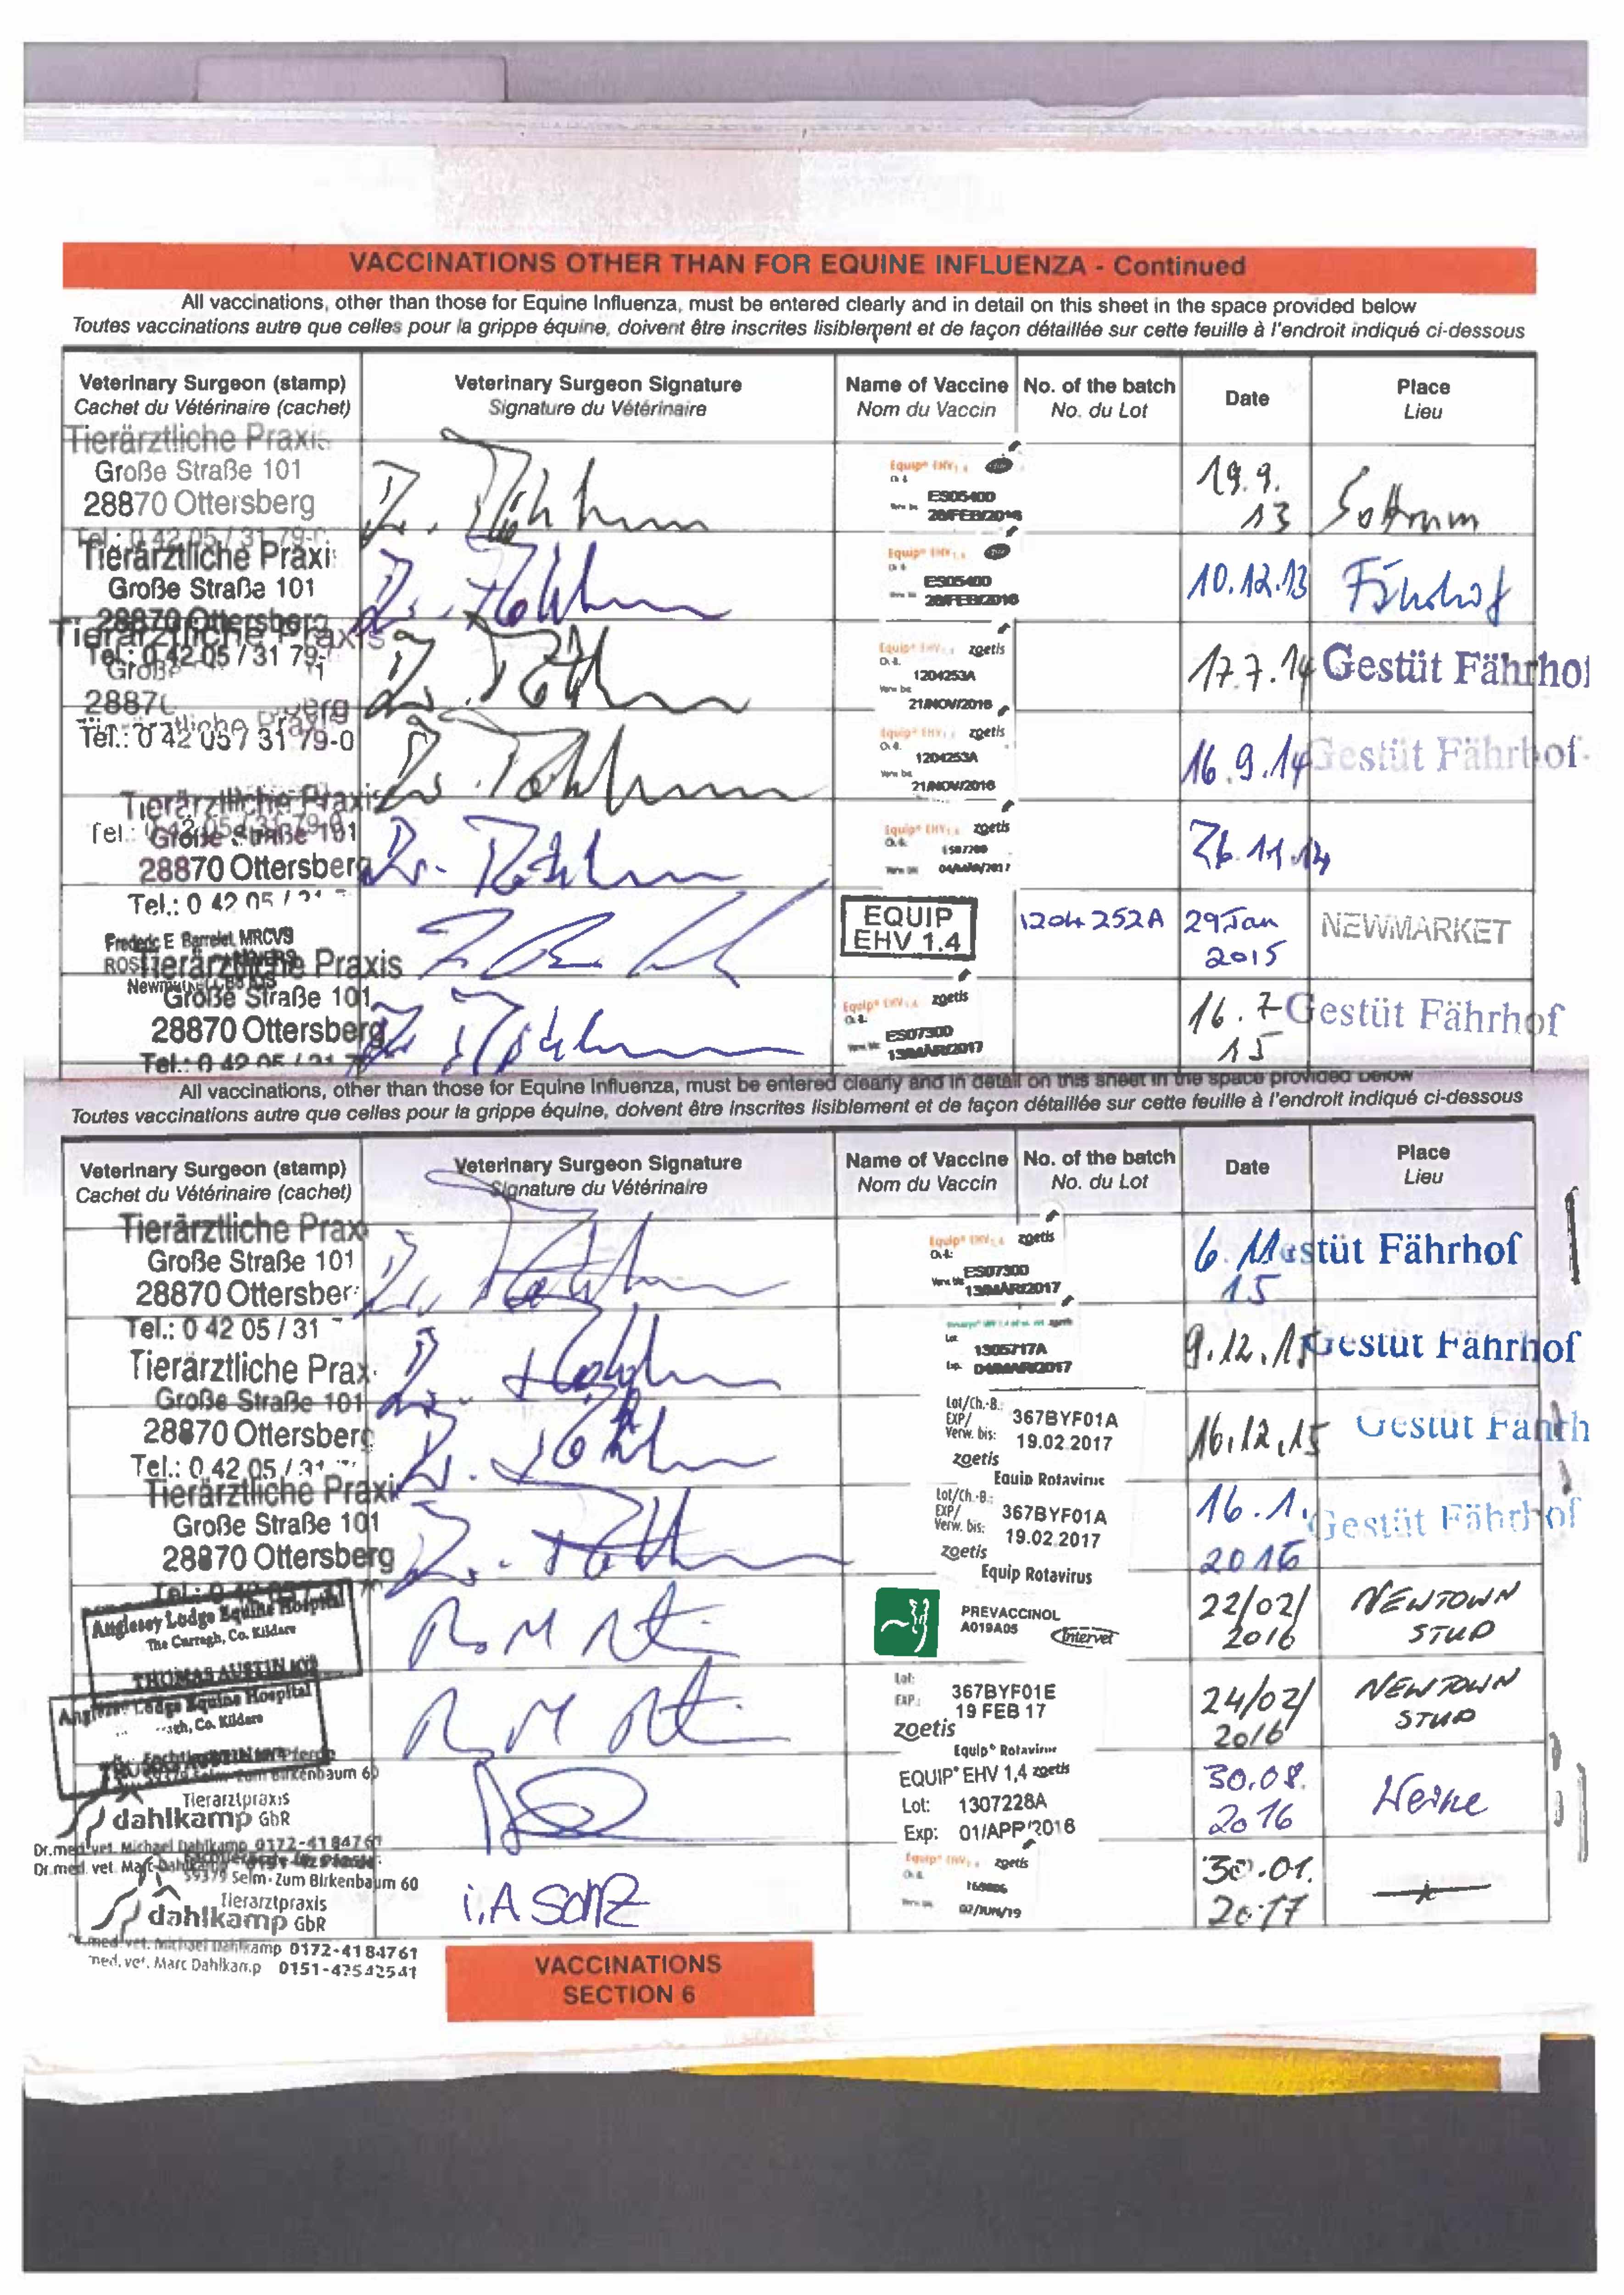 VACCINATIONS OTHER THAN FOR EQUINE INFLUENZA - Continued
All vaccinations, other than those for Equine Influenza, must be entered clearly and in detail on this sheet in the space provided below
Toutes vaccinations autre que celles pour la grippe équine, doivent être inscrites lisiblement et de façon détaillée sur cette feuille à l'endroit indiqué ci-dessous
Veterinary Surgeon (stamp) Veterinary Surgeon Signature Name of Vaccine No. of the batch Date Place
Cachet du Vétérinaire (cachet) Signature du Vétérinaire Nom du Vaccin No. du Lot Lieu
Tierärztliche Praxis
Große Straße 101
28870 Ottersberg
Tel.: 0 42 05 / 31 79-0
Equip® EHV 1,4
ES05400
28/FEB/2016
19.9.
13
Sottrum
Tierärztliche Praxi
Große Straße 101
28870 Ottersberg
Tel.: 0 42 05 / 31 79-
Equip® EHV 1,4
ES05400
28/FEB/2016
10.12.13
Fährhof
Tierärztliche Praxis
Große
2887
Tel.: 0 42 05 / 31 79-0
Equip® EHV 1,4 zoetis
1204253A
21/NOV/2016
17.7.14
Gestüt Fährhof
Equip® EHV 1,4 zoetis
1204253A
21/NOV/2016
16.9.14
Gestüt Fährhof
Tierärztliche Praxis
Große Straße 101
28870 Ottersberg
Tel.: 0 42 05 /
Equip® EHV 1,4 zoetis
26.11.14
Frederic E Barrelet MRCVS
EQUIP
EHV 1.4
1204252A
29 Jan
2015
NEWMARKET
Tierärztliche Praxis
Große Straße 101
28870 Ottersberg
Equip® EHV 1,4 zoetis
ES07300
13/MAR/2017
16.7
15
Gestüt Fährhof
All vaccinations, other than those for Equine Influenza, must be entered clearly and in detail on this sheet in the space provided below
Toutes vaccinations autre que celles pour la grippe équine, doivent être inscrites lisiblement et de façon détaillée sur cette feuille à l'endroit indiqué ci-dessous
Veterinary Surgeon (stamp) Veterinary Surgeon Signature Name of Vaccine No. of the batch Date Place
Cachet du Vétérinaire (cachet) Signature du Vétérinaire Nom du Vaccin No. du Lot Lieu
Tierärztliche Prax
Große Straße 101
28870 Ottersber
Tel.: 0 42 05 / 31
Equip® EHV 1,4 zoetis
ES07300
13/MAR/2017
6.
15
stüt Fährhof
Tierärztliche Prax
Große Straße 101
28870 Ottersberg
Tel.: 0 42 05 /
Lot
1305717A
Exp.
9.12.15
Gestüt Fährhof
Lot/Ch.-B.:
EXP/ 367BYF01A
Verw. bis: 19.02.2017
zoetis
Equip Rotavirus
16.12.15
Gestüt Fährh
Tierärztliche Praxi
Große Straße 101
28870 Ottersberg
Lot/Ch.-B.:
EXP/ 367BYF01A
Verw. bis: 19.02.2017
zoetis
Equip Rotavirus
16.1.
2016
Gestüt Fährhof
Anglesey Lodge Equine Hospital
The Curragh, Co. Kildare
THOMAS AUSTIN
PREVACCINOL
A019A05
Intervet
22/02/
2016
NEWTOWN
STUD
Anglesey Lodge Equine Hospital
Co. Kildare
Lot: 367BYF01E
EXP.: 19 FEB 17
zoetis
Equip® Rotavirus
24/02/
2016
NEWTOWN
STUD
Tierarztpraxis
dahlkamp GbR
Dr.med.vet. Michael Dahlkamp 0172-4184761
EQUIP® EHV 1,4 zoetis
Lot: 1307228A
Exp: 01/APR/2016
30.08.
2016
Werne
59379 Selm - Zum Birkenbaum 60
Tierarztpraxis
dahlkamp GbR
med.vet. Michael Dahlkamp 0172-4184761
med. vet. Marc Dahlkamp 0151-42542541
i.A
Equip® EHV 1,4 zoetis
02/JUN/19
30.01.
2017
VACCINATIONS
SECTION 6